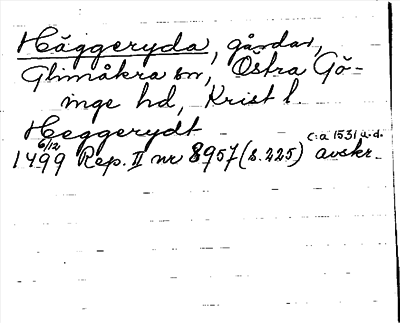 Häggeryda, gårdar,
Glimåkra sn, Östra Gö-
inge hd, Krist l.
Heggerydt
6/12 1499 Rep. II nr 8957 (s. 225) c:a 1531 a.d. avskr.